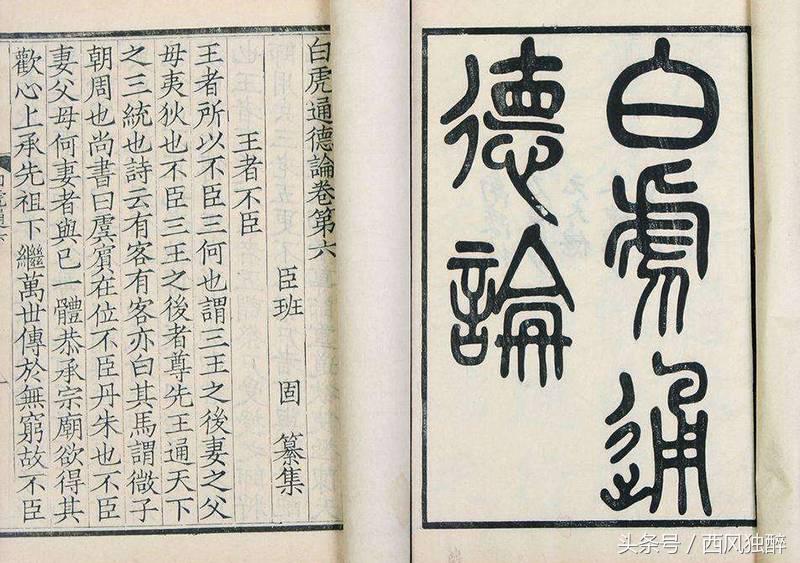 白虎通
德論
白虎通德論卷第六
臣班 固 纂集
王者不臣
王者所以不臣三何也謂三王之後妻之父
母夷狄也不臣三王之後者尊先王通天下
之三統也詩云有客有客亦曰其馬謂微子
朝周也尚書曰虞賓在位不臣丹朱也不臣
妻父母何妻者與己一體恭承宗廟欲得其
歡心上承先祖下繼萬世傳於無窮故不臣
头条号 / 西风独醉